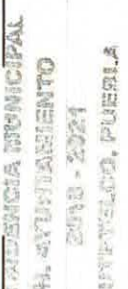 PRESIDENCIA MUNICIPAL
H. AYUNTAMIENTO
2018 - 2021
PUEBLA